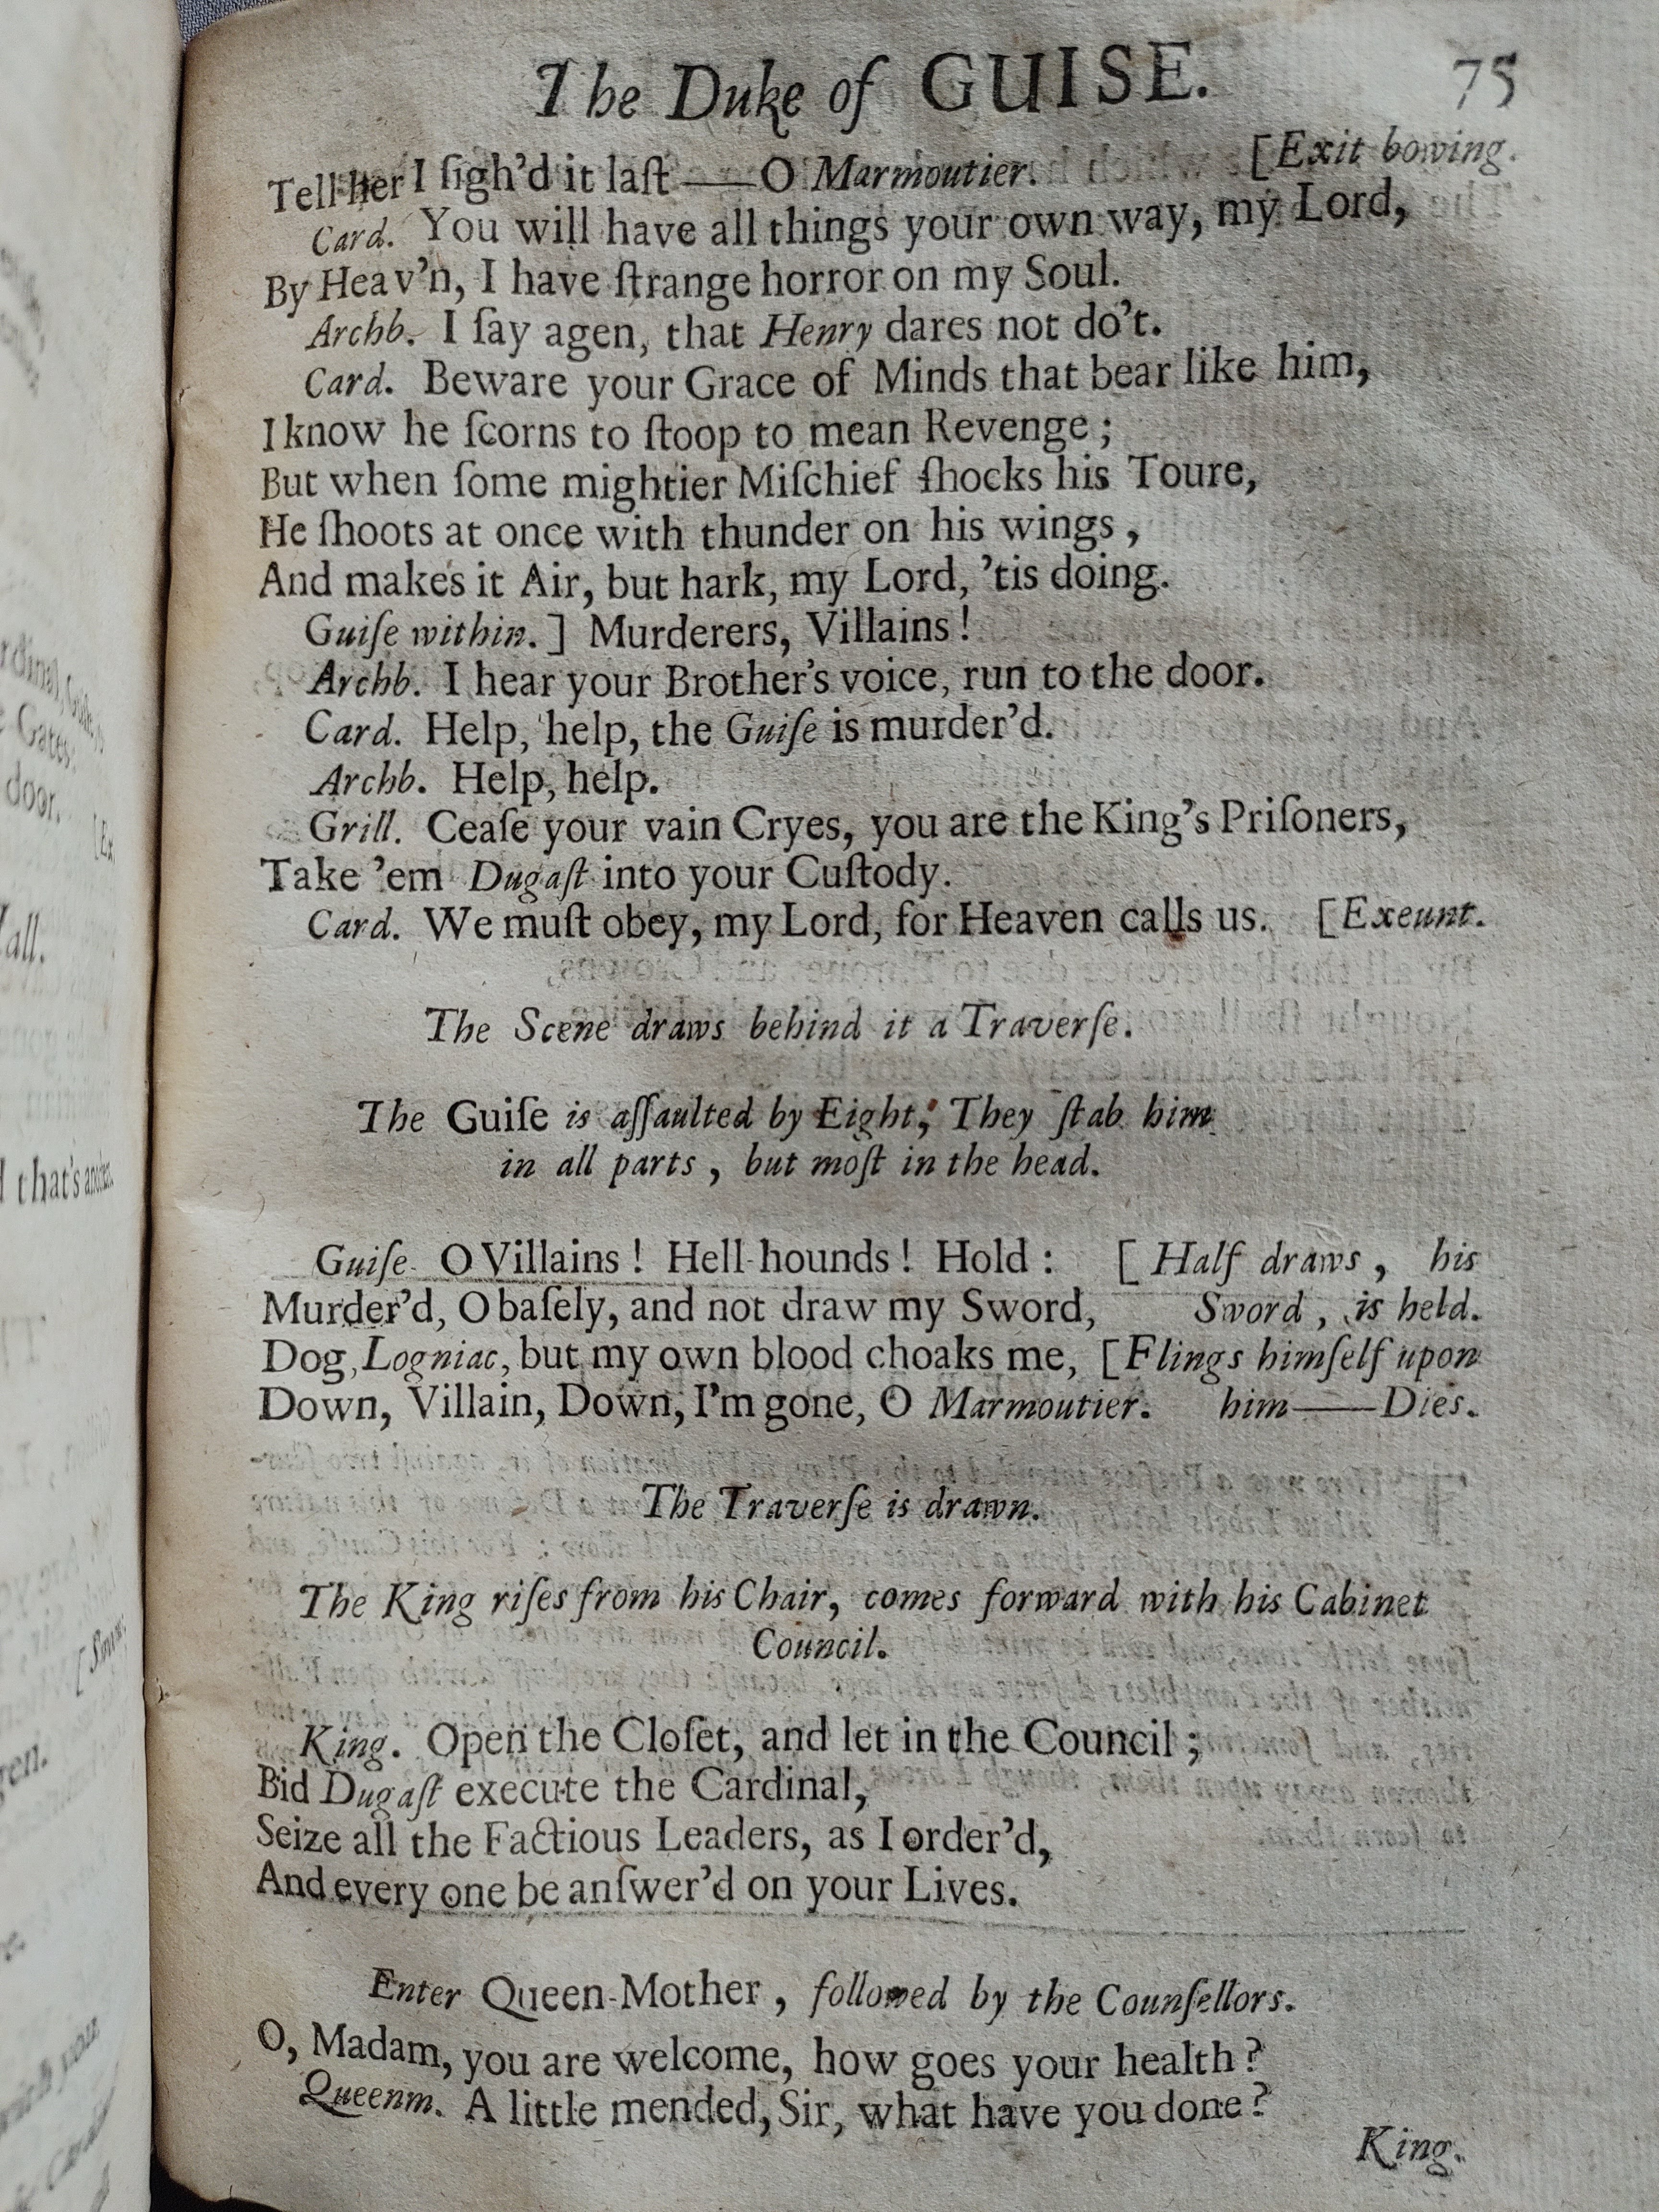 The Duke of GUISE. 75
Tell her I ſigh'd it laſt ——O Marmoutier. [Exit bowing.
Card. You will have all things your own way, my Lord,
By Heav'n, I have ſtrange horror on my Soul.
Archb. I ſay agen, that Henry dares not do't.
Card. Beware your Grace of Minds that bear like him,
I know he ſcorns to ſtoop to mean Revenge;
But when ſome mightier Miſchief ſhocks his Toure,
He ſhoots at once with thunder on his wings,
And makes it Air, but hark, my Lord, 'tis doing.
Guiſe within.] Murderers, Villains!
Archb. I hear your Brother's voice, run to the door.
Card. Help, help, the Guiſe is murder'd.
Archb. Help, help.
Grill. Ceaſe your vain Cryes, you are the King's Priſoners,
Take 'em Dugaſt into your Cuſtody.
Card. We muſt obey, my Lord, for Heaven calls us. [Exeunt.
The Scene draws behind it a Traverſe.
The Guiſe is aſſaulted by Eight; They ſtab him
in all parts, but moſt in the head.
Guiſe. O Villains! Hell-hounds! Hold: [Half draws, his
Murder'd, O baſely, and not draw my Sword, Sword, is held.
Dog, Logniac, but my own blood choaks me, [Flings himſelf upon
Down, Villain, Down, I'm gone, O Marmoutier. him——Dies.
The Traverſe is drawn.
The King riſes from his Chair, comes forward with his Cabinet
Council.
King. Open the Cloſet, and let in the Council;
Bid Dugaſt execute the Cardinal,
Seize all the Factious Leaders, as I order'd,
And every one be anſwer'd on your Lives.
Enter Queen-Mother, followed by the Counſellors.
O, Madam, you are welcome, how goes your health?
Queenm. A little mended, Sir, what have you done?
King.